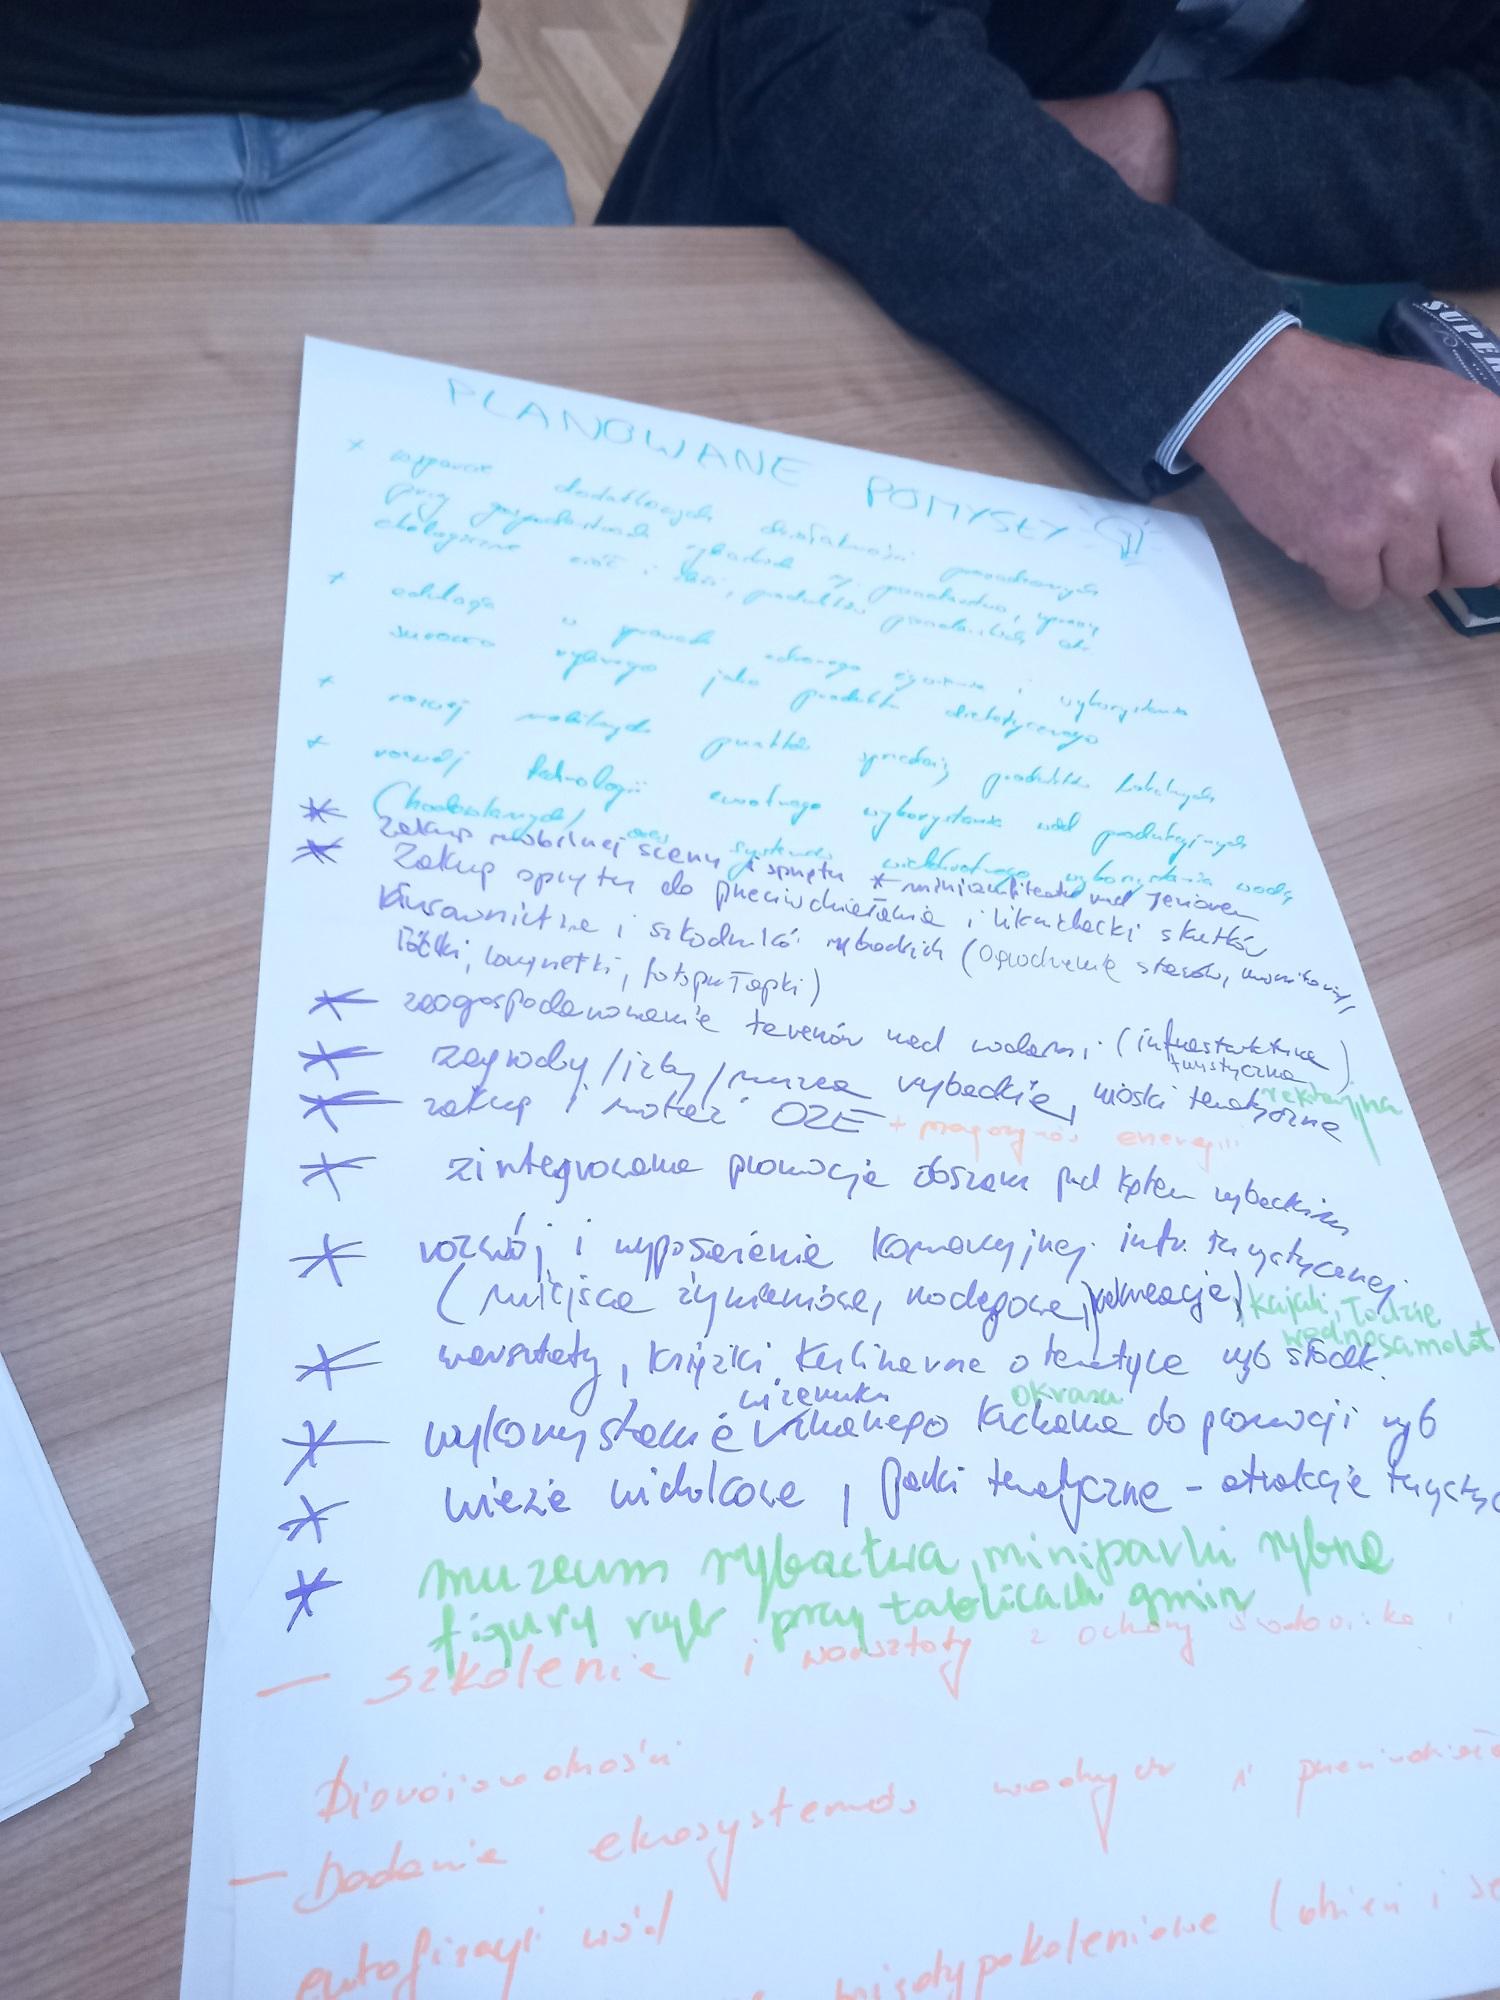 SUPER
PLANOWANE POMYSŁY
+ wsparcie dodatkowych działalności prowadzonych
przy gospodarstwach rybackich np. pszczelarstwo, uprawy
ekologiczne
+ edukacja w sprawach zdrowego żywienia i wykorzystania
surowca rybnego jako produktu dietetycznego
+ rozwój mobilnych punktów sprzedaży produktów lokalnych
+ rozwój technologii zwrotnego wykorzystania wód produkcyjnych
(hodowlanych) oraz systemów wielokrotnego wykorzystania wody
* zakup mobilnej sceny i sprzętu * miniamfiteatr nad jeziorem
* Zakup sprzętu do przeciwdziałania i likwidacji skutków
kłusownictwa i szkodników rybackich (ogrodzenie stawów, monitoring,
łódki, lornetki, fotopułapki)
* zagospodarowanie terenów nad wodami (infrastruktura
turystyczna)
rekreacyjna
* zagrody/izby/muzea rybackie, wioski tematyczne
* zakup i montaż OZE + magazynów energii
* zintegrowana promocja obszaru pod kątem rybackim
* rozwój i wyposażenie komercyjnej infr. turystycznej
(miejsca żywieniowe, noclegowe, rekreacja) kajaki, łodzie
wodnosamolot
* warsztaty, książki kulinarne o tematyce ryb słodk.
wizerunku okrasa
* wykorzystanie znanego kucharza do promocji ryb
* wieże widokowe, parki tematyczne - atrakcje turystyc
* muzeum rybactwa, miniparki rybne
figury ryb przy tablicach gmin
— szkolenia i warsztaty z ochrony środowiska i
Bioróżnorodności
— Badanie ekosystemów wodnych i
eutrofizacji wód
międzypokoleniowe